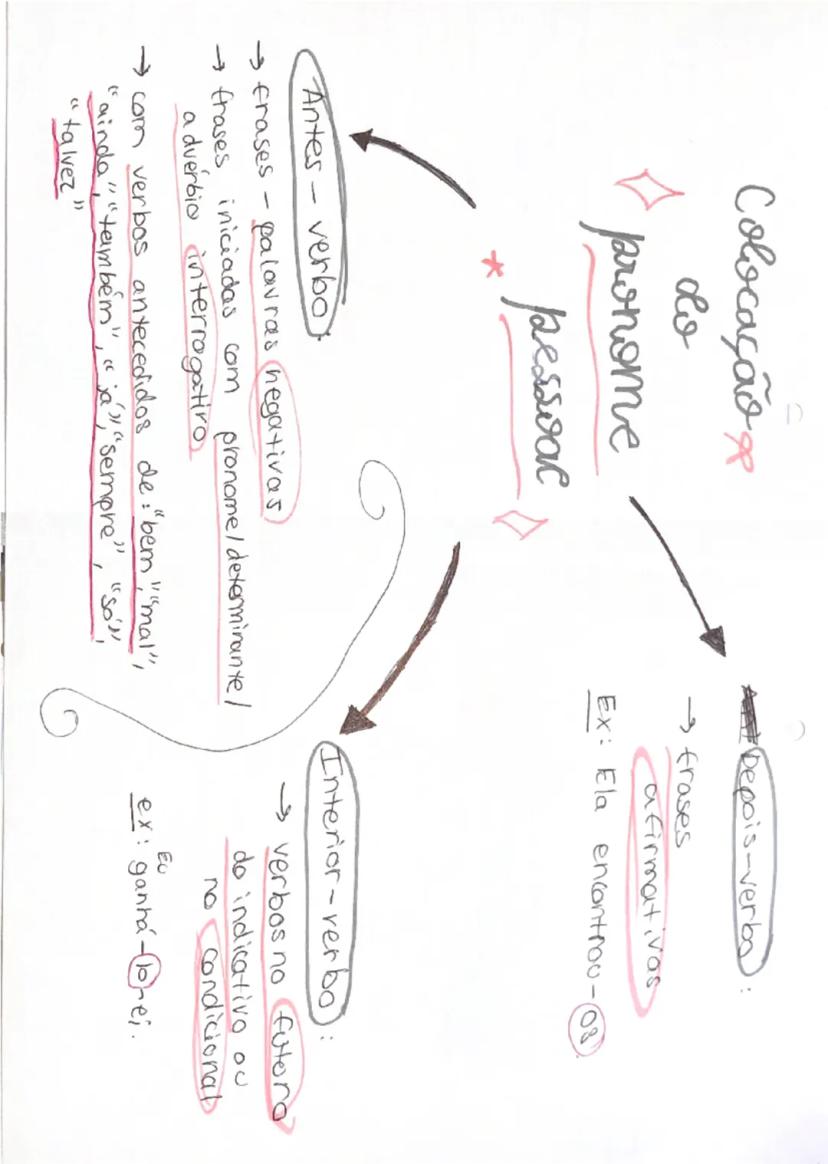 Colocação
do
pronome
pessoal
Antes-verbo:
→ frases - palavras negativas
→ frases iniciadas com pronome/determinante/
advérbio interrogativo
→ com verbos antecedidos de: "bem", "mal",
"ainda", "também", "já", "sempre", "só",
"talvez"
Depois-verbo:
→ frases
afirmativas
Ex: Ela encontrou-os
Interior-verbo:
→ verbos no futuro
do indicativo ou
no condicional
Eu
ex: ganhá-lo-ei.